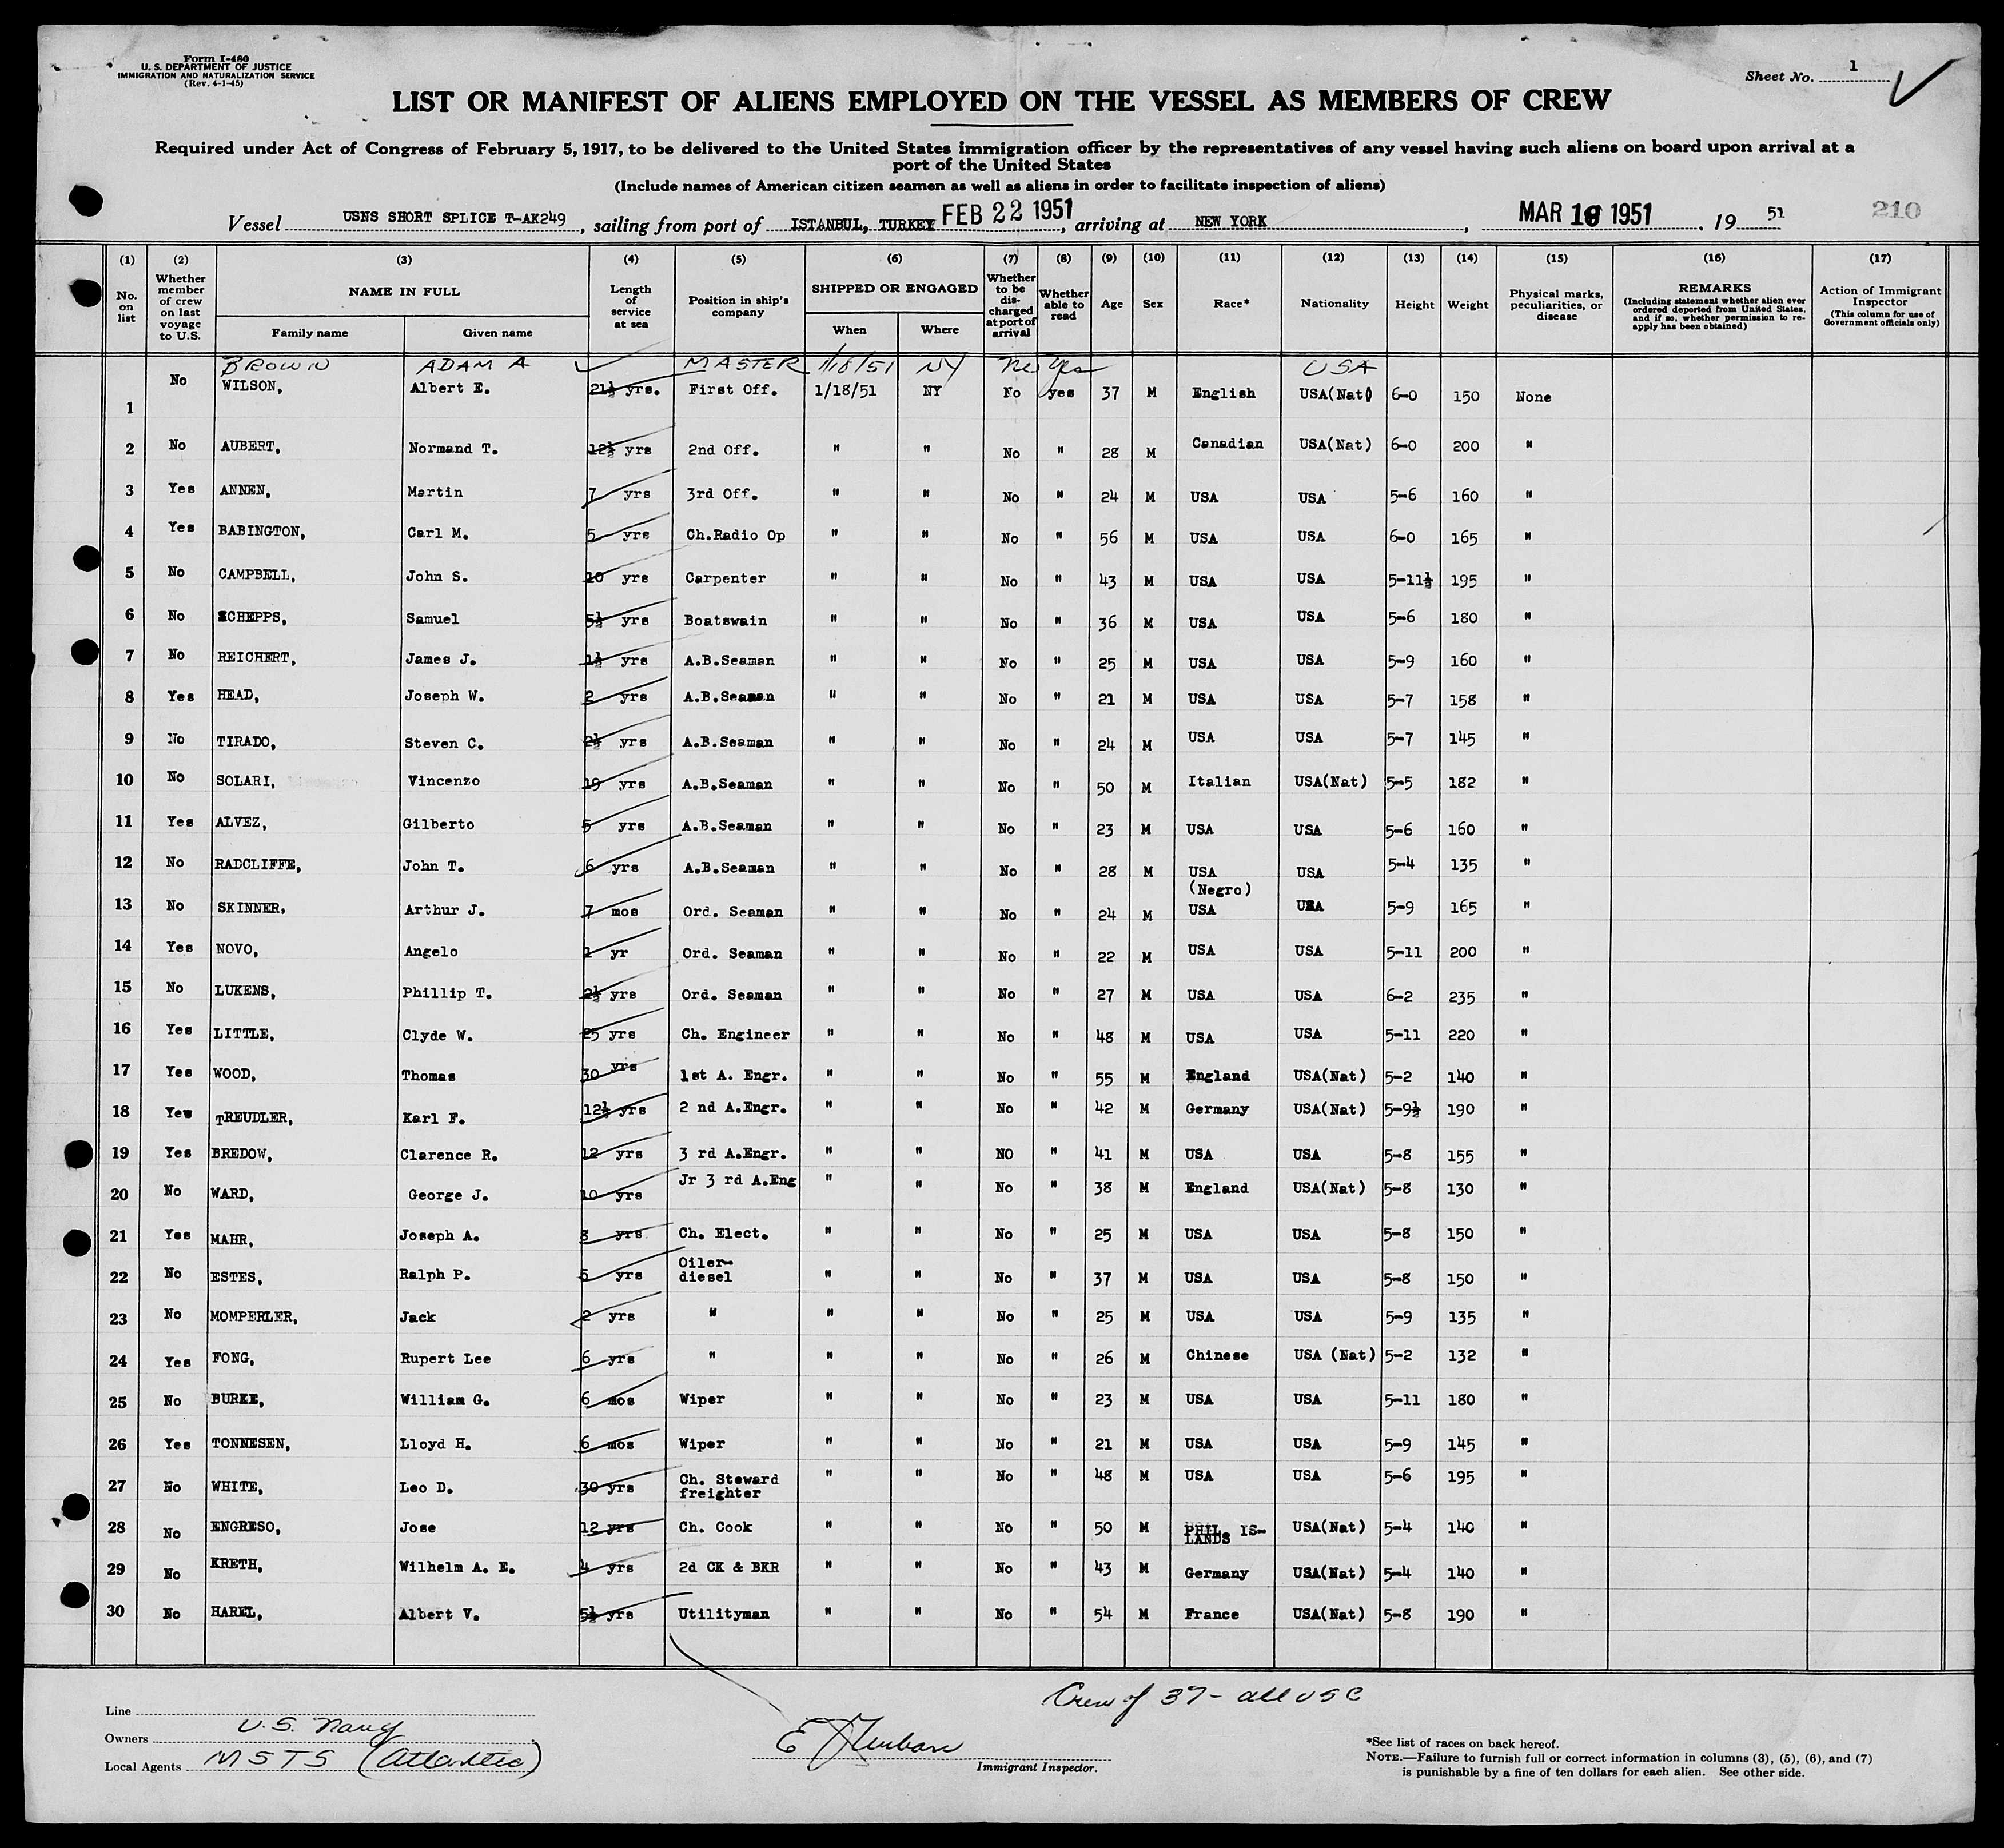 Form I-480
U. S. DEPARTMENT OF JUSTICE
IMMIGRATION AND NATURALIZATION SERVICE
(Rev. 4-1-45)
Sheet No. 1
LIST OR MANIFEST OF ALIENS EMPLOYED ON THE VESSEL AS MEMBERS OF CREW
Required under Act of Congress of February 5, 1917, to be delivered to the United States immigration officer by the representatives of any vessel having such aliens on board upon arrival at a
port of the United States
(Include names of American citizen seamen as well as aliens in order to facilitate inspection of aliens)
Vessel USNS SHORT SPLICE T-AK249, sailing from port of ISTANBUL, TURKEY FEB 22 1951, arriving at NEW YORK, MAR 1951, 19 51 210
(1) No. on list (2) Whether member of crew on last voyage to U.S. (3) NAME IN FULL Family name Given name (4) Length of service at sea (5) Position in ship's company (6) SHIPPED OR ENGAGED When Where (7) Whether to be discharged at port of arrival (8) Whether able to read (9) Age (10) Sex (11) Race* (12) Nationality (13) Height (14) Weight (15) Physical marks, peculiarities, or disease (16) REMARKS (Including statement whether alien ever ordered deported from United States, and if so, whether permission to re-apply has been obtained) (17) Action of Immigrant Inspector (This column for use of Government officials only)
BROWN ADAM A MASTER 1/18/51 NY No Yes USA
1 No WILSON, Albert E. 21½ yrs. First Off. 1/18/51 NY No yes 37 M English USA(Nat) 6-0 150 None
2 No AUBERT, Normand T. 12½ yrs 2nd Off. " " No " 28 M Canadian USA(Nat) 6-0 200 "
3 Yes ANNEN, Martin 7 yrs 3rd Off. " " No " 24 M USA USA 5-6 160 "
4 Yes BABINGTON, Carl M. 5 yrs Ch.Radio Op " " No " 56 M USA USA 6-0 165 "
5 No CAMPBELL, John S. 10 yrs Carpenter " " No " 43 M USA USA 5-11½ 195 "
6 No SCHEPPS, Samuel 5½ yrs Boatswain " " No " 36 M USA USA 5-6 180 "
7 No REICHERT, James J. 1½ yrs A.B.Seaman " " No " 25 M USA USA 5-9 160 "
8 Yes HEAD, Joseph W. 2 yrs A.B.Seaman " " No " 21 M USA USA 5-7 158 "
9 No TIRADO, Steven C. 2½ yrs A.B.Seaman " " No " 24 M USA USA 5-7 145 "
10 No SOLARI, Vincenzo 19 yrs A.B.Seaman " " No " 50 M Italian USA(Nat) 5-5 182 "
11 Yes ALVEZ, Gilberto 5 yrs A.B.Seaman " " No " 23 M USA USA 5-6 160 "
12 No RADCLIFFE, John T. 6 yrs A.B.Seaman " " No " 28 M USA USA 5-4 135 "
13 No SKINNER, Arthur J. 7 mos Ord. Seaman " " No " 24 M (Negro) USA USA 5-9 165 "
14 Yes NOVO, Angelo 1 yr Ord. Seaman " " No " 22 M USA USA 5-11 200 "
15 No LUKENS, Phillip T. 2½ yrs Ord. Seaman " " No " 27 M USA USA 6-2 235 "
16 Yes LITTLE, Clyde W. 25 yrs Ch. Engineer " " No " 48 M USA USA 5-11 220 "
17 Yes WOOD, Thomas 30 yrs 1st A. Engr. " " No " 55 M England USA(Nat) 5-2 140 "
18 Yew TREUDLER, Karl F. 12½ yrs 2 nd A.Engr. " " No " 42 M Germany USA(Nat) 5-9½ 190 "
19 Yes BREDOW, Clarence R. 12 yrs 3 rd A.Engr. " " NO " 41 M USA USA 5-8 155 "
20 No WARD, George J. 10 yrs Jr 3 rd A.Eng " " No " 38 M England USA(Nat) 5-8 130 "
21 Yes MAHR, Joseph A. 8 yrs Ch. Elect. " " No " 25 M USA USA 5-8 150 "
22 No ESTES, Ralph P. 5 yrs Oiler-diesel " " No " 37 M USA USA 5-8 150 "
23 No MOMPERLER, Jack 2 yrs " " " No " 25 M USA USA 5-9 135 "
24 Yes FONG, Rupert Lee 6 yrs " " " No " 26 M Chinese USA (Nat) 5-2 132 "
25 No BURKE, William G. 6 mos Wiper " " No " 23 M USA USA 5-11 180 "
26 Yes TONNESEN, Lloyd H. 6 mos Wiper " " No " 21 M USA USA 5-9 145 "
27 No WHITE, Leo D. 30 yrs Ch. Steward freighter " " No " 48 M USA USA 5-6 195 "
28 No ENGRESO, Jose 12 yrs Ch. Cook " " No " 50 M PHIL. IS-LANDS USA(Nat) 5-4 140 "
29 No KRETH, Wilhelm A. E. 4 yrs 2d CK & BKR " " No " 43 M Germany USA(Nat) 5-4 140 "
30 No HAREL, Albert V. 5½ yrs Utilityman " " No " 54 M France USA(Nat) 5-8 190 "
Crew of 37 - all USC
Line
Owners U.S. Navy
Local Agents MSTS (Atlantic)
Immigrant Inspector.
*See list of races on back hereof.
NOTE.—Failure to furnish full or correct information in columns (3), (5), (6), and (7)
is punishable by a fine of ten dollars for each alien. See other side.